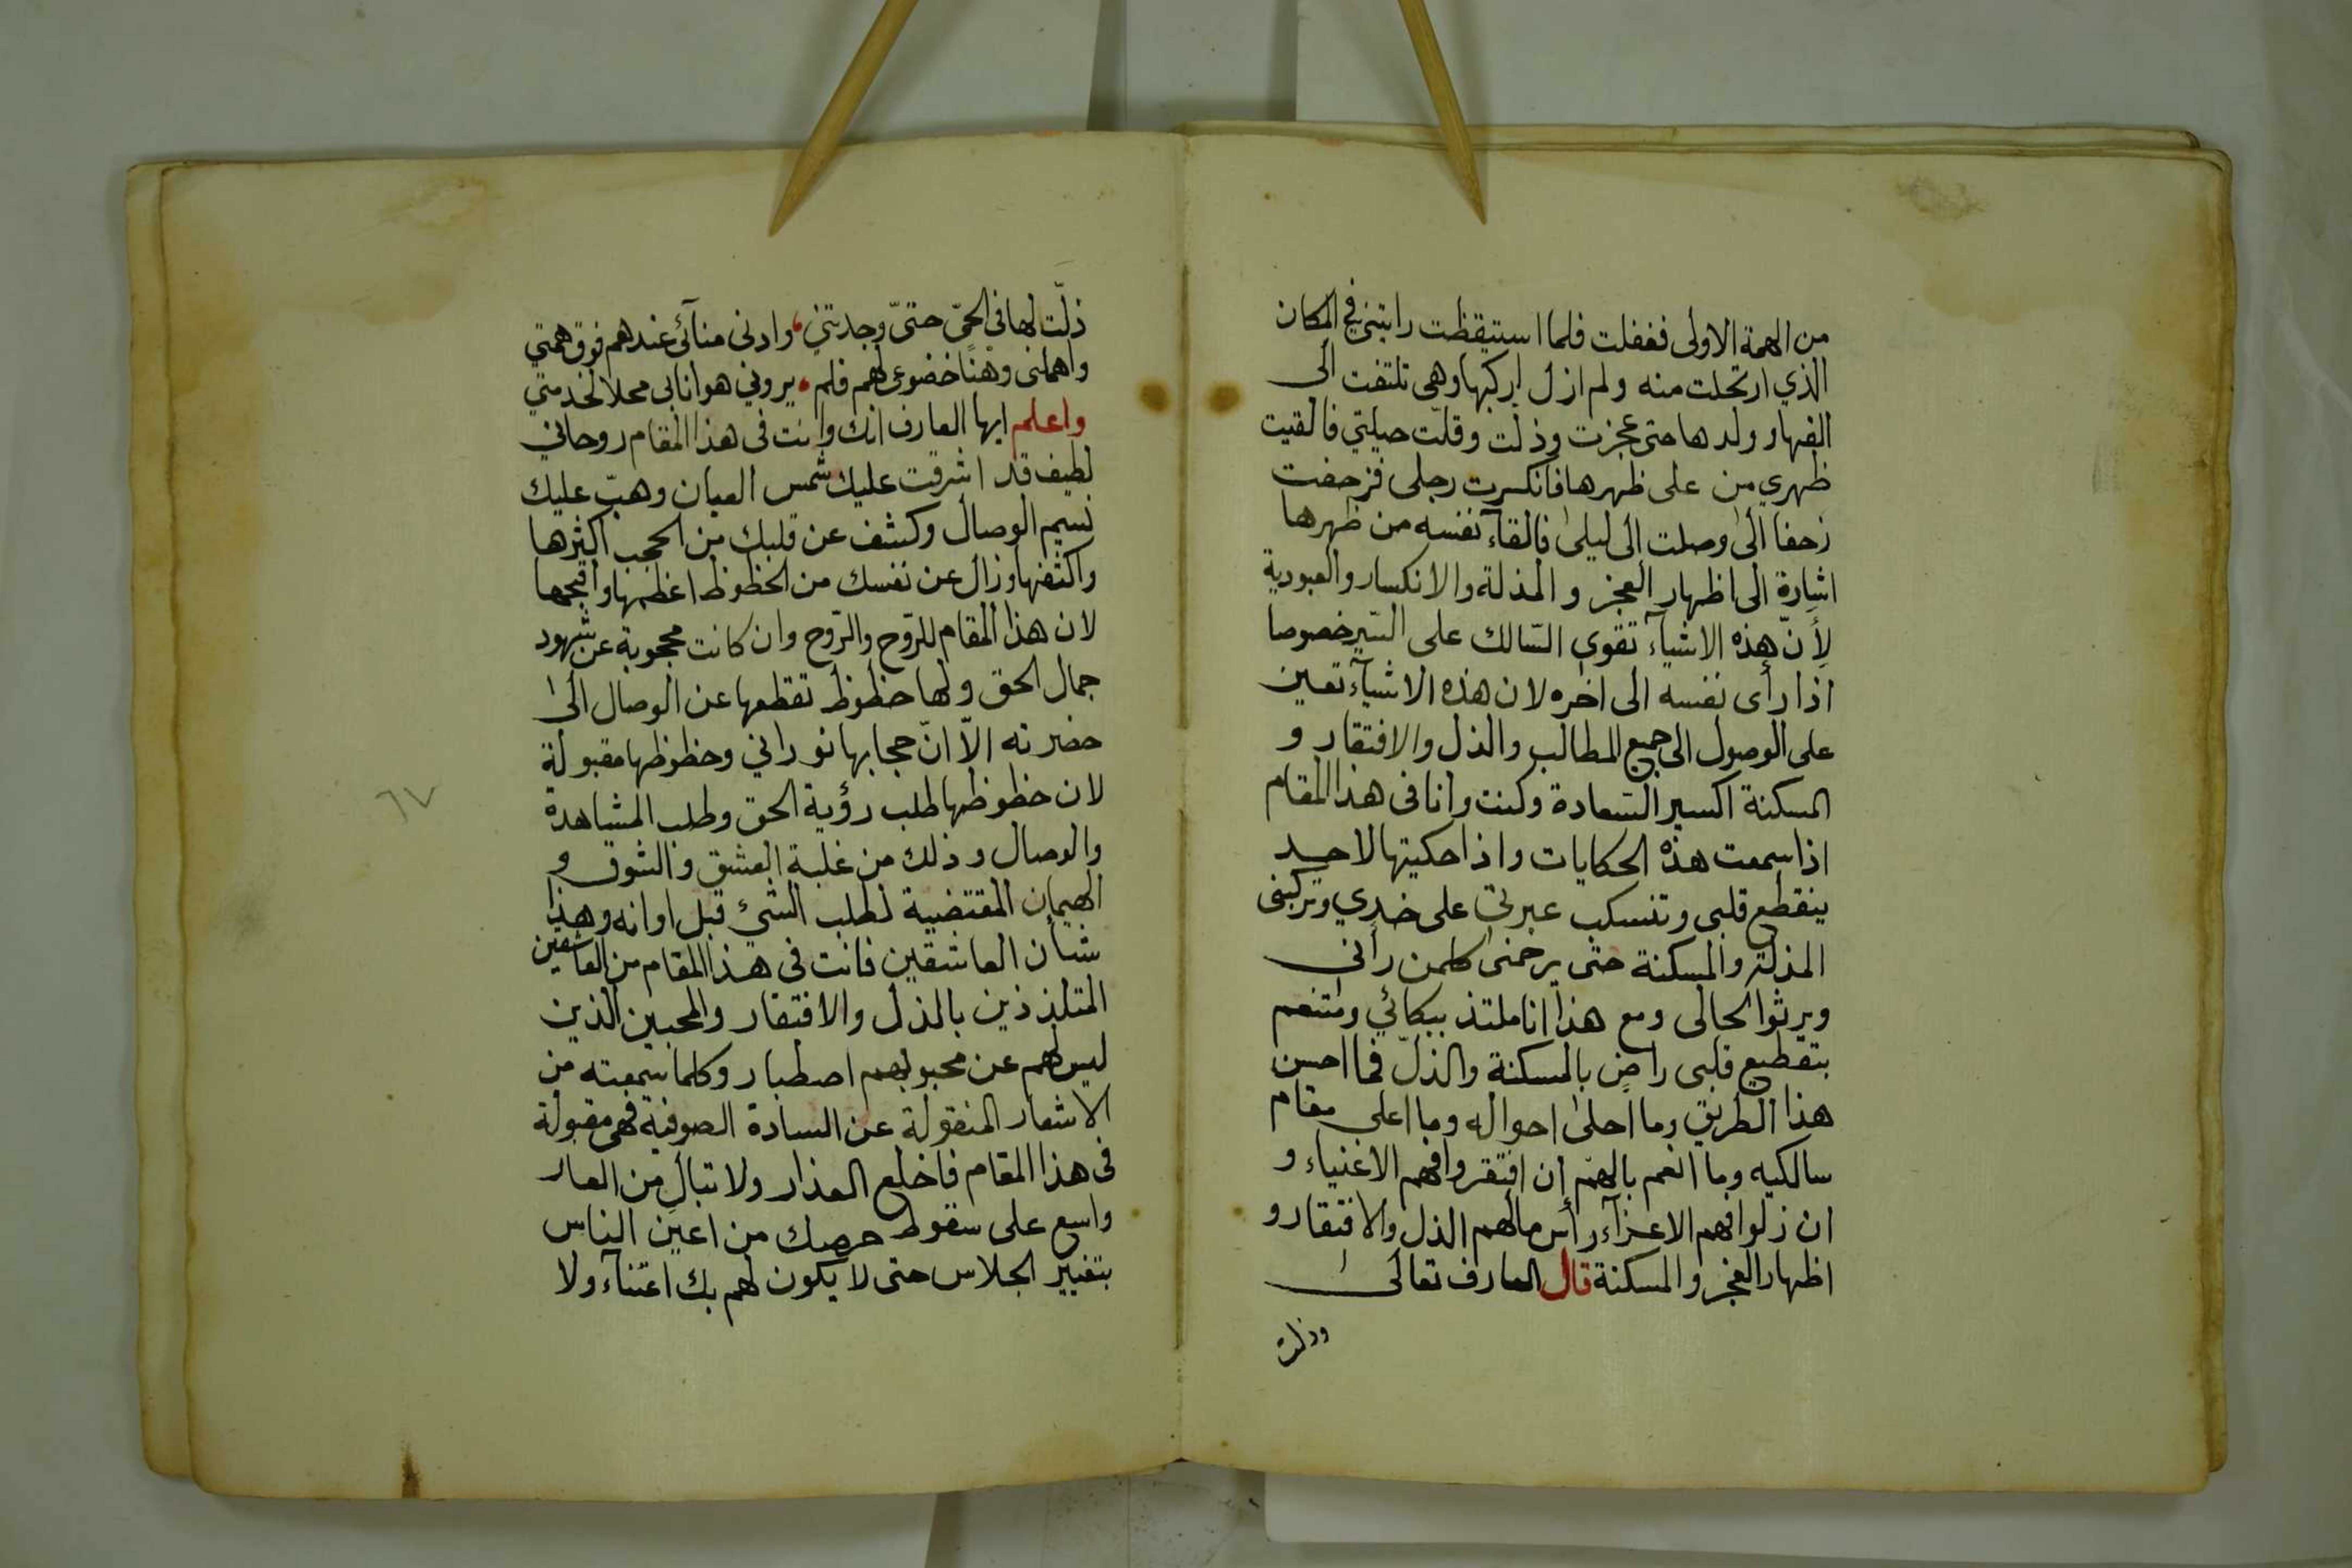 من الهمة الاولى فغفلت فلما استيقظت رايتني في المكان
الذي ارتحلت منه ولم ازل اركبها وهي تلتفت الى
الفها و ولدها حتى عجزت وذلت وقلّت حيلتي فالقيت
ظهري من على ظهرها فانكسرت رجلى فزحفت
زحفا الى وصلت الى ليلى فالقآء نفسه من ظهرها
اشارة الى اظهار العجز و المذلة والانكسار والعبودية
لأنّ هذه الاشيآء تقوى السّالك على السّير خصوصا
اذا رأى نفسه الى اخره لان هذه الاشيآء تعين
على الوصول الى جميع المطالب والذل والافتقار و
المسكنة اكسير السّعادة وكنت وانا فى هذا المقام
اذا سمعت هذه الحكايات واذا حكيتها لاحد
ينقطع قلبى وتنسكب عبرتى على خدي وتركبنى
المذلة والمسكنة حتى يرحمنى كلمن رأنى
ويرثوا لحالى ومع هذا انا ملتذ ببكائي ومتنعم
بتقطيع قلبى راضٍ بالمسكنة والذلّ فما احسن
هذا الطريق وما احلى احواله وما اعلى مقام
سالكيه وما انعم بالهم ان افتقروا فهم الاغنياء و
ان ذلوا فهم الاعزآء رأس مالهم الذل والافتقار و
اظهار العجز والمسكنة قال العارف تعالى
وذلت
ذلّت لها فى الحىّ حتىّ وجدتني، وادنى منآئى عندهم فوق همتي
واهملنى وهنًا خضوعى لهم فلم • يرونى هوانا بى محلا لخدمتي
واعلم ايها العارف انك وانت فى هذا المقام روحاني
لطيف قد اشرقت عليك شمس العيان وهبّ عليك
نسيم الوصال وكشف عن قلبك من الحجب اكثرها
واكثفها وزال عن نفسك من الحظوظ اعظمها واقبحها
لان هذا المقام للرّوح والرّوح وان كانت محجوبة عن شهود
جمال الحق ولها حظوظ تقطعها عن الوصال الى
حضرته الاّ انّ حجابها نوراني وحظوظها مقبولة
لان حظوظها طلب رؤية الحق وطلب المشاهدة
والوصال وذلك من غلبة العشق والشوق و
الهيمان المقتضية لطلب الشئ قبل اوانه وهذا
شأن العاشقين فانت فى هذا المقام من العاشقين
المتلذذين بالذل والافتقار والمحبين الذين
ليس لهم عن محبوبهم اصطبار وكلما سمعته من
الاشعار المنقولة عن السادة الصوفية فهى مقبولة
فى هذا المقام فاخلع العذار ولا تبال من العار
واسع على سقوط حرمتك من اعين الناس
بتغيير الجلاس حتى لا يكون لهم بك اعتنآء ولا
٦٧